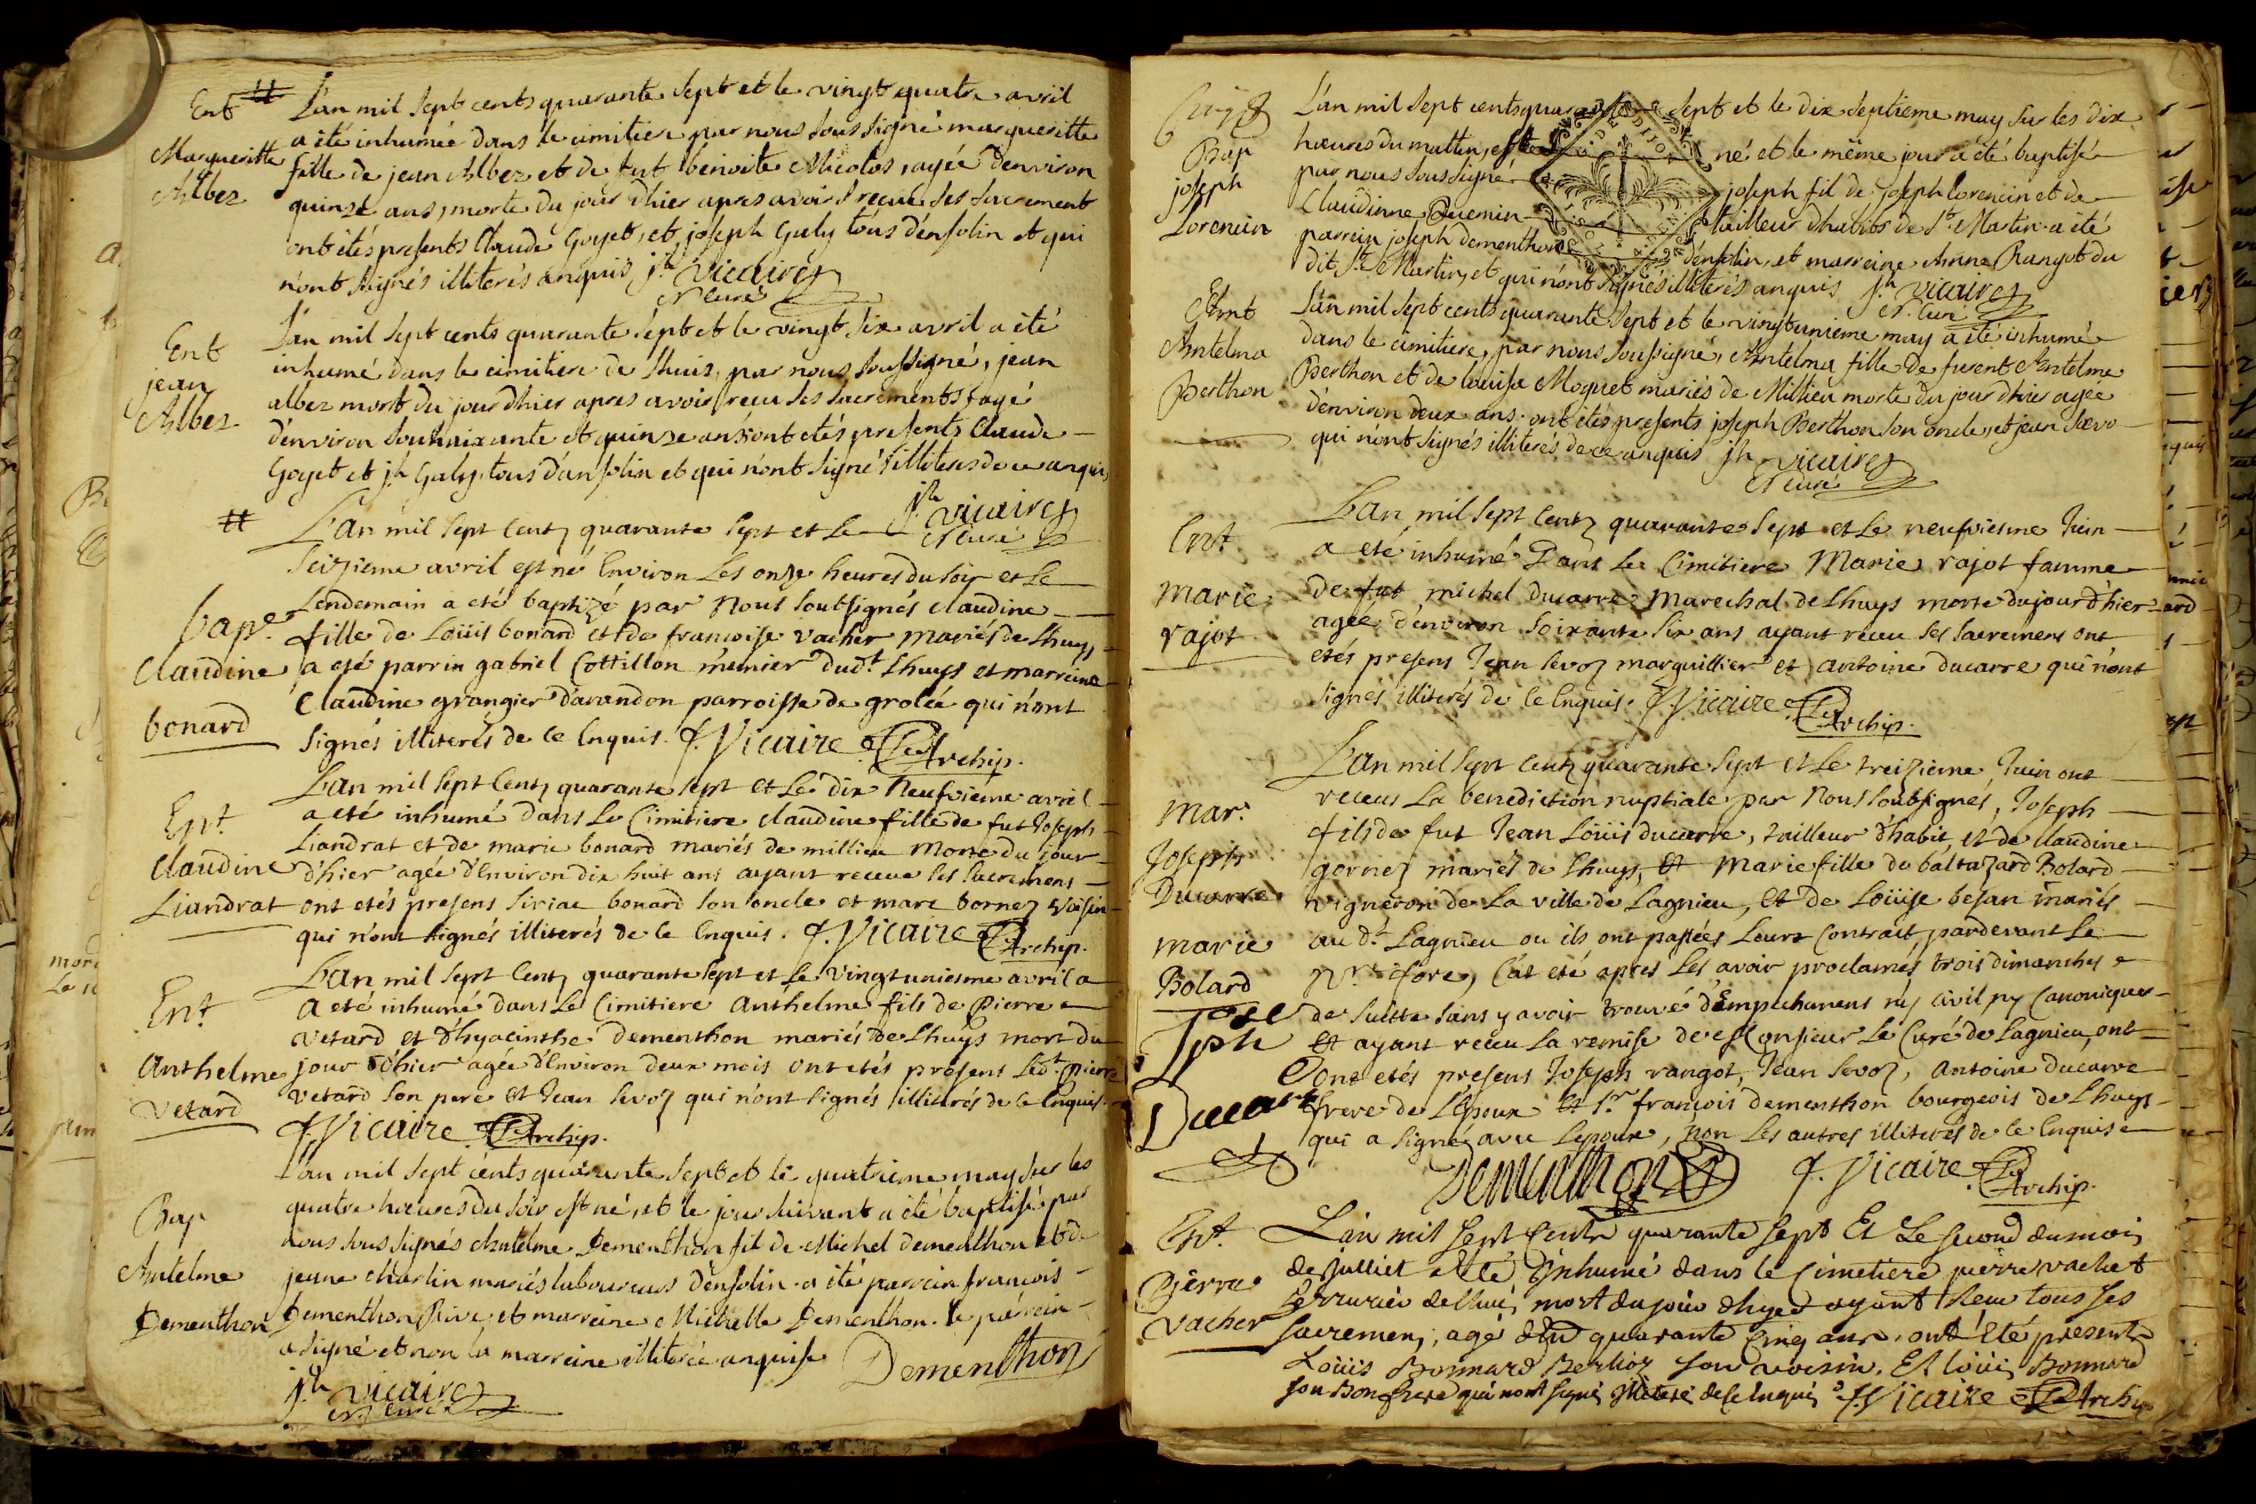 Ent
Margueritte
Albez
L'an mil sept cents quarante sept et le vingt quatre avril
a été inhumée dans le cimitiere par nous sous signé margueritte
fille de jean Albez et de fut benoite Micolos, agée d'environ
quinze ans, morte du jour d'hier apres avoir receue ses sacrement
ont étés presents Claude Goyet, et joseph Galy tous d'ensolin et qui
n'ont signés illiterés anquis jh vicaire
et curé
Ent
jean
Albez
L'an mil sept cents quarante sept et le vingt six avril a été
inhumé dans le cimitiere de Lhuis, par nous soussigné, jean
albez mort du jour d'hier apres avoir reçu ses sacrements agé
d'environ souhaixante et quinze ans ont étés presents Claude
Goyet et jh Galy, tous d'ansolin et qui n'ont signé illiteres de ce anquis
jh vicaire
et curé
bap.e
Claudine
bonard
L'an mil sept Centz quarante sept et Le
seizieme avril est né Environ Les onze heures du soir et Le
Lendemain a eté baptizé par Nous soubsignés claudine
fille de Loüis bonard et de francoise vacher mariés de Lhuys
a eté parrin gabriel Cottillon mennier dud.t Lhuys et marreine
Claudine grangier d'avandon parroisse de grolée qui n'ont
signés illiterés de ce Enquis. J. Vicaire C. Archip.
Ent.
Claudine
Liandrat
L'an mil sept Centz quarante sept et Le dix Neufvieme avril
a eté inhumé dans Le Cimitiere claudine fille de fut Joseph
Liandrat et de marie bonard mariés de millieu Morte du jour
d'hier agée d'Environ dix huit ans ayant receue ses sacremens
ont etés presens siriac bonard son oncle et marc bornez voisin
qui n'ont signés illiterés de ce Enquis. J. Vicaire C. Archip.
Ent.
Anthelme
vetard
L'an mil sept Centz quarante sept et Le vingtuniesme avril a
a eté inhumé dans Le Cimitiere anthelme fils de Pierre
vetard et d'hyacinthe dementhon mariés de Lhuys mort du
jour d'hier agée d'Environ deux mois ont etés presens Led.t pierre
vetard son pere et Jean sevoz qui n'ont signés illiterés de ce Enquis.
J. Vicaire C. Archip.
Bap
Antelme
Dementhon
L'an mil sept cents quarante sept et le quatrieme may sur les
quatre heures du soir est né, et le jour suivant a été baptisé par
nous sous signés Antelme Dementhon fil de Michel dementhon et de
jeane charlin mariés laboureurs d'ensolin a été parrein francois
Dementhon Rive, et marreine Michelle Dementhon. le parrein
a signé et non la marreine illiterée anquise Dementhon
jh vicaire
et curé
Bap
joseph
Lorencin
L'an mil sept cents quarante sept et le dix septieme may sur les dix
heures du mattin, est né et le même jour a été baptisé
par nous sous signé joseph fil de Joseph Lorencin et de
Claudinne Quemin tailleur d'habits de St Martin a été
parrein joseph dementhon d'ensolin, et marreine Anne Rangot du
dit St Martin, et qui n'ont signés illiterés anquis jh vicaire
et curé
Ent
Antelma
Berthon
L'an mil sept cents quarante sept et le vingtunieme may a été inhumé
dans le cimitiere, par nous soussigné, Antelma fille de furent Antelme
Berthon et de louise Moquet mariés de Millieu morte du jour d'hier agée
d'environ deux ans. ont étés presents joseph Berthon son oncle, et jean Sevo
qui n'ont signés illiterés de ce anquis jh vicaire
et curé
Ent.
marie
rajot
L'an mil sept Centz quarante sept et Le neufviesme Juin
a eté inhumé Dans Le Cimitiere Marie rajot famme
de fut michel ducarre marechal de Lhuys morte du jour d'hier
agée d'environ soixante six ans ayant receu ses sacremens ont
etés presens Jean sevoz marguillier et antoine ducarre qui n'ont
signés illiterés de ce Enquis. J. Vicaire C. Archip.
Mar.
Joseph
Ducarre
marie
Bolard
L'an mil sept Centz quarante sept et Le treizieme Juin ont
receus La benediction nuptiale par Nous soubsignés, Joseph
fils de fut Jean Loüis ducarre, tailleur d'habit, et de claudine
gornez mariés de Lhuys, et Marie fille de baltazard Bolard
vigneron de La ville de Lagnieu, et de Loüise besan mariés
aud.t Lagnieu ou ils ont passées Leurs Contrait pardevant Le
N.re fore, C'at eté apres Les avoir proclamés trois dimanches
de suitte sans y avoir trouvé d'Empechemens ny civil ny Canonique
Et ayant receu La remise de Monsieur Le Curé de Lagnieu, ont
ont etés presens Joseph rangot, Jean sevoz, antoine ducarre
frere de L'Epoux Et Sr françois dementhon bourgeois de Lhuys
qui a signé avec Lepoux, non Les autres illiterés de ce Enquis
Jph
Ducarre
Dementhon J. Vicaire C. Archip.
Ent.
Pierre
vacher
L'an mil sept Cents quarante sept Et Le second du mois
de Julliet a été Inhumé dans le Cimetiere pierre vachet
serrurier de Lhuis mort du jour d'hyer ayant Receu tous ses
sacremens, agé d'en quarante Cinq ans, ont été present
Loüis Bonnard Berlioz son voisin, Et loüis Bonnard
son Bonfrere qui n'ont signé illiteré de ce Enquis J. Vicaire C. Archip